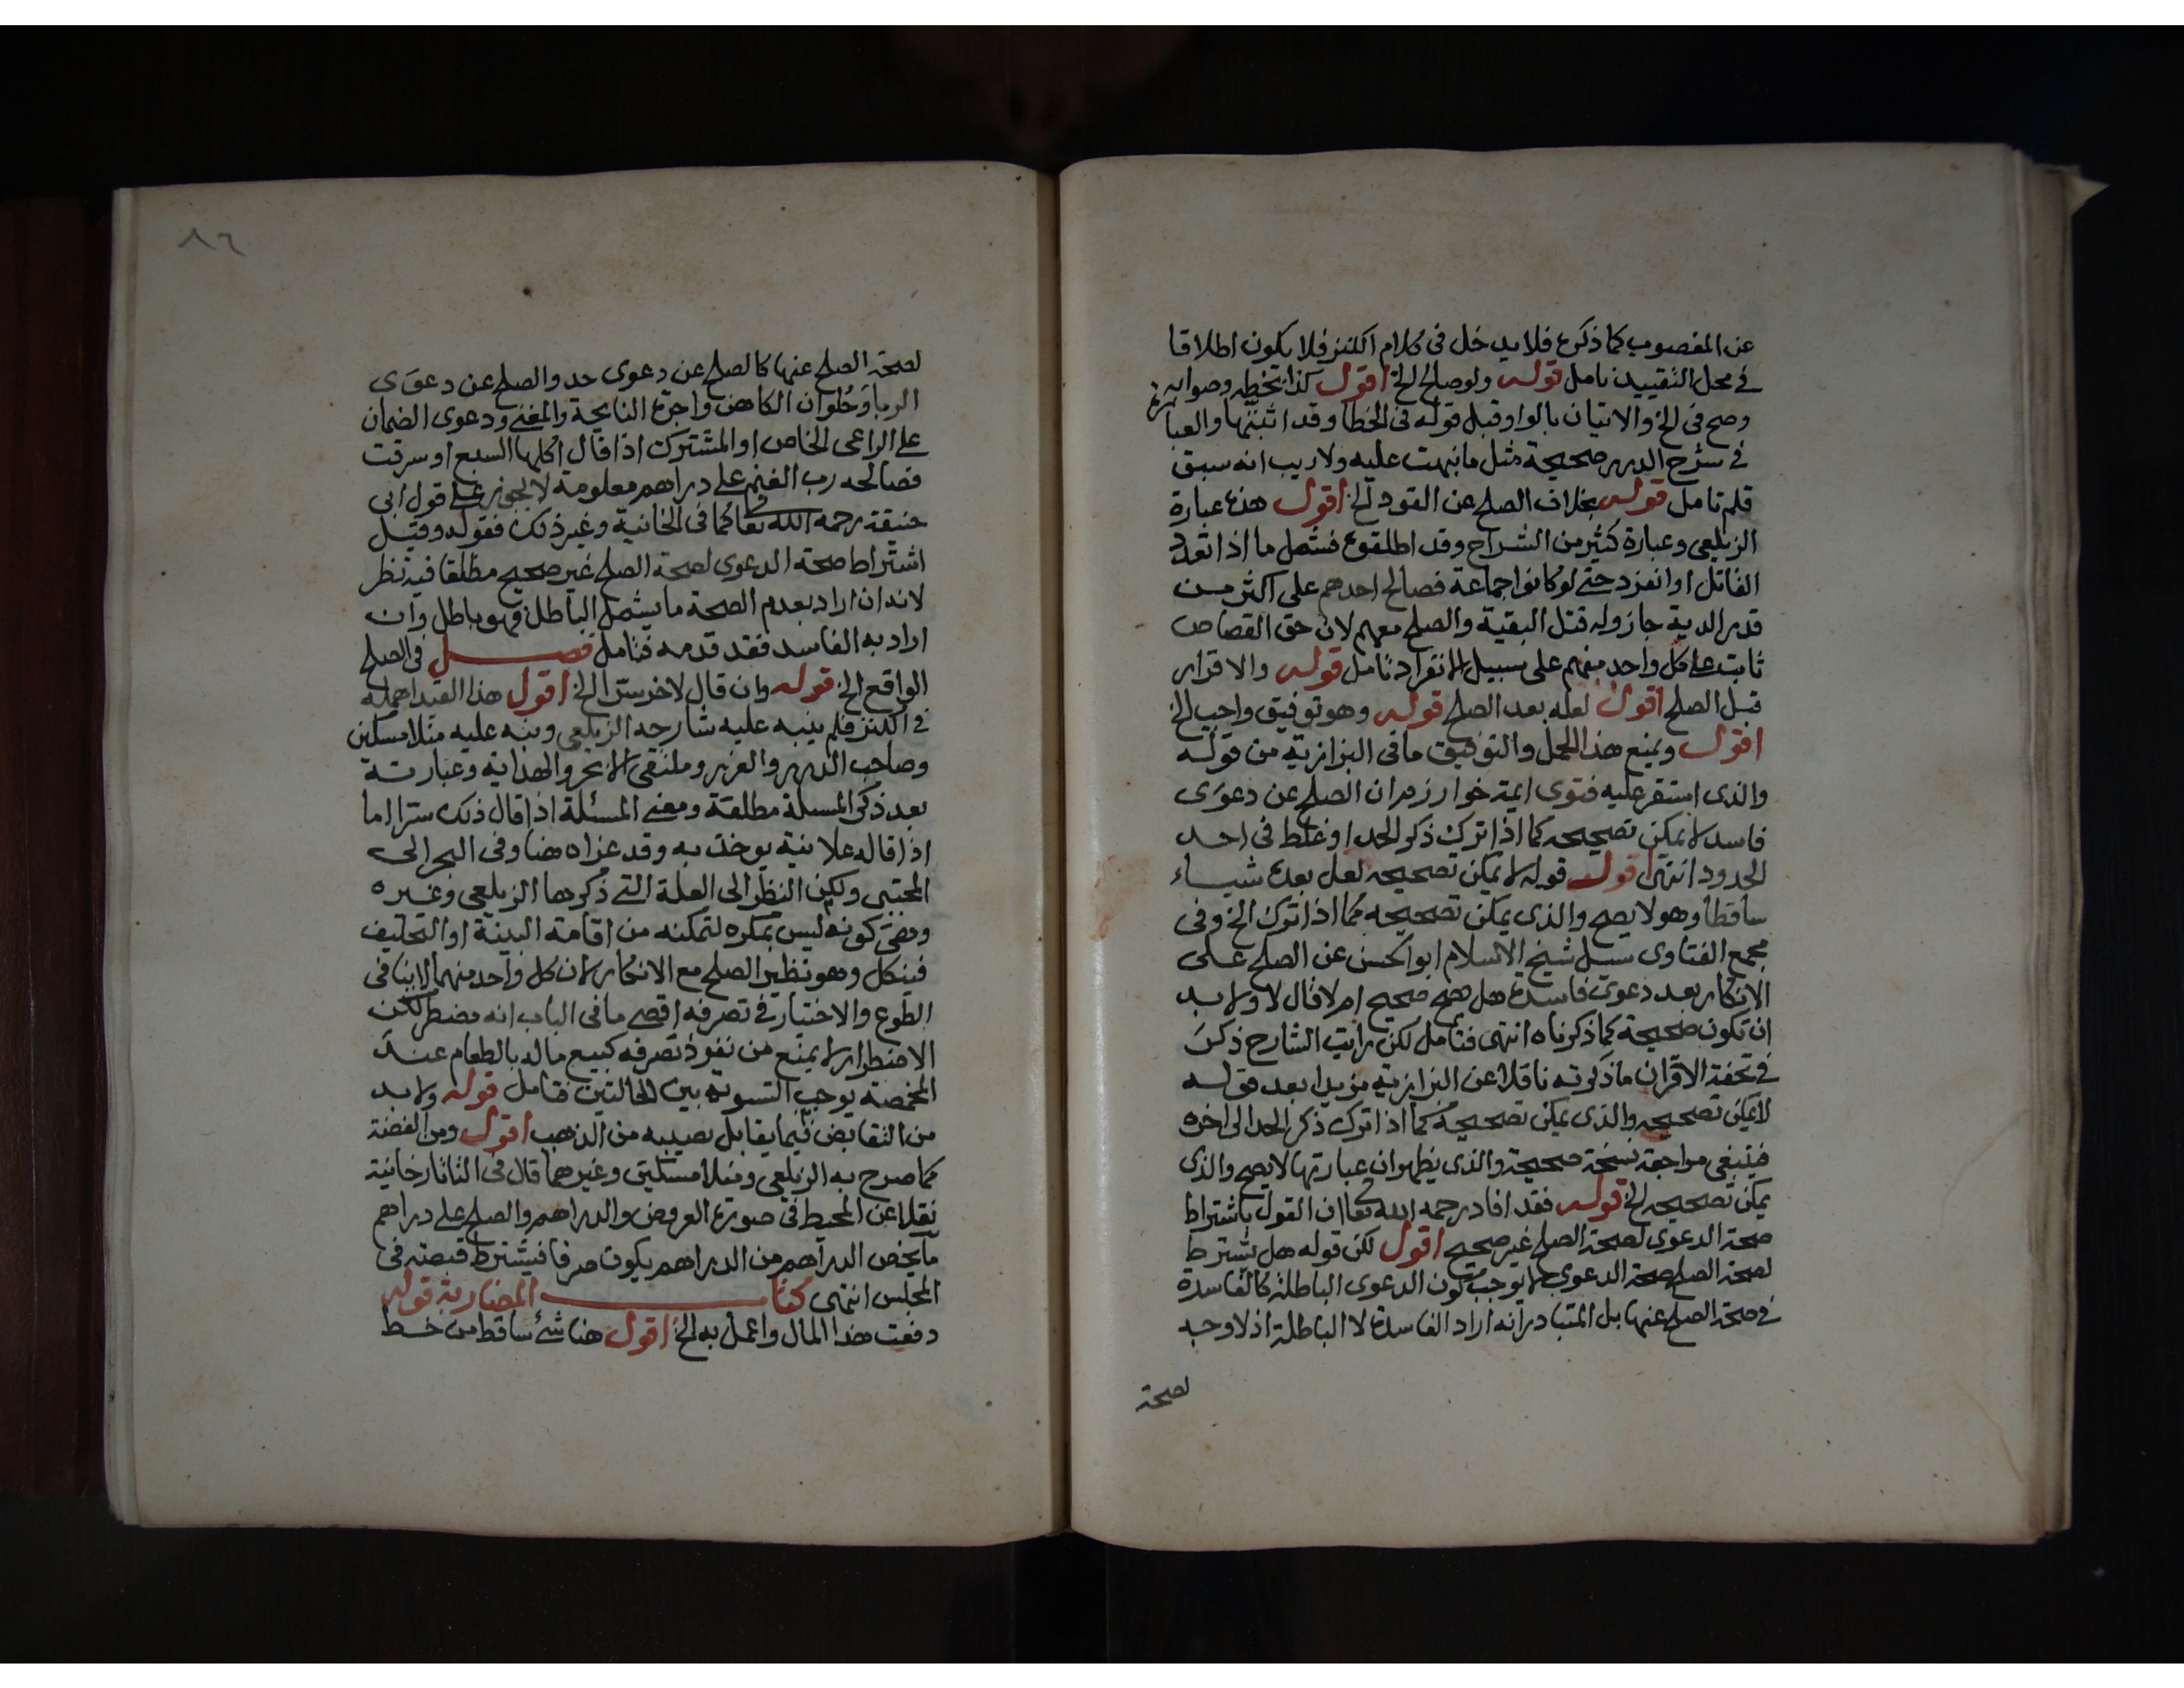 عن المغصوب كما ذكره فلا يدخل في كلام الكنز فلا يكون اطلاقا
في محل التقييد تامل قوله ولو صالح الخ اقول كذا بخطه وصوابه
وصح في الخ والاتيان بالواو قبل قوله في الخطا وقد اثبتها والعبا
في شرح الدرر صحيحة مثل ما نبهت عليه ولا ريب انه سبق
قلم تامل قوله بخلاف الصلح عن القود الخ اقول هذه عبارة
الزيلعي وعبارة كثير من الشراح وقد اطلقوه فشمل ما اذا تعدد
القاتل او انفرد حتى لو كانوا جماعة فصالح احدهم على اكثر من
قدر الدية جاز وله قتل البقية والصلح معهم لان حق القصاص
ثابت على كل واحد منهم على سبيل الانفراد تامل قوله والاقرار
قبل الصلح اقول لعله بعد الصلح قوله وهو توفيق واجب الخ
اقول ويمنع هذا الحمل والتوفيق ما في البزازية من قوله
والذي استقر عليه فتوى ايمة خوارزم ان الصلح عن دعوى
فاسدة لا يمكن تصحيحه كما اذا ترك ذكر الحد او غلط في احد
الحدود انتهى اقول قوله لا يمكن تصحيحه لعل بعده شياء
ساقطا وهو لا يصح والذي يمكن تصحيحه كما اذا ترك الخ وفي
مجمع الفتاوى سئل شيخ الاسلام ابو الحسن عن الصلح على
الانكار بعد دعوى فاسدة هل هو صحيح ام لا قال لا ولا بد
ان تكون صحيحة كما ذكرناه انتهى فتامل لكن رايت الشارح ذكر
في تحفة الاقران ما ذكرته ناقلا عن البزازية مزيدا بعد قوله
لا يمكن تصحيحه والذي يمكن تصحيحه كما اذا ترك ذكر الحد الى اخره
فينبغي مراجعة نسخة صحيحة والذي يظهر ان عبارتها لا يصح والذي
يمكن تصحيحه الخ قوله فقد افاد رحمه الله تعا ان القول باشتراط
صحة الدعوى لصحة الصلح غير صحيح اقول لكن قوله هل يشترط
لصحة الصلح صحة الدعوى لا يوجب كون الدعوى الباطلة كالفاسدة
في صحة الصلح عنها بل المتبادر انه اراد الفاسدة لا الباطلة اذ لا وجه
لصحة
٨٦
لصحة الصلح عنها كالصلح عن دعوى حد والصلح عن دعوى
الربا وحلوان الكاهن واجرة النايحة والمغني ودعوى الضمان
على الراعي الخاص او المشترك اذا قال اكلها السبع او سرقت
فصالحه رب الغنم على دراهم معلومة لا يجوز على قول ابي
حنيفة رحمه الله تعا كما في الخانية وغير ذلك فقوله وقيل
اشتراط صحة الدعوى لصحة الصلح غير صحيح مطلقا فيه نظر
لانه ان اراد بعدم الصحة ما يشمل الباطل فهو باطل وان
اراد به الفاسد فقد قدمه فتامل فصل في الصلح
الواقع الخ قوله وان قال لاخر سرا الخ اقول هذا القيد اهمله
في الكنز فلم ينبه عليه شارحه الزيلعي ونبه عليه مثلا مسكين
وصاحب الدرر والغرر وملتقى الابحر والهداية وعبارته
بعد ذكر المسلة مطلقة ومعنى المسئلة اذا قال ذلك سرا اما
اذا قاله علانية يوخذ به وقد عزاه هنا وفي البحر الى
المجتبى ولكن النظر الى العلة التي ذكرها الزيلعي وغيره
وهي كونه ليس بمكره لتمكنه من اقامة البينة او التحليف
فينكل وهو نظير الصلح مع الانكار لان كل واحد منهما لا ينافي
الطوع والاختيار في تصرفه اقصى ما في الباب انه مضطر لكن
الاضطرار لا يمنع من نفوذ تصرفه كبيع ماله بالطعام عند
المخمصة يوجب التسوية بين الحالتين فتامل قوله ولا بد
من التقابض فيما يقابل نصيبه من الذهب اقول ومن الفضة
كما صرح به الزيلعي ومنلا مسكين وغيرهما قال في التاتارخانية
نقلا عن المحيط في صورة العروض والدراهم والصلح على دراهم
ما يخص الدراهم من الدراهم يكون صرفا فيشترط قبضه في
المجلس انتهى كتاب المضاربة قوله
دفعت هذا المال واعمل به الخ اقول هنا شئ ساقط من خط